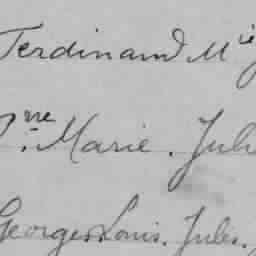 Ferdinand Mie
Jne. Marie. Juli
Georges Louis. Jules.